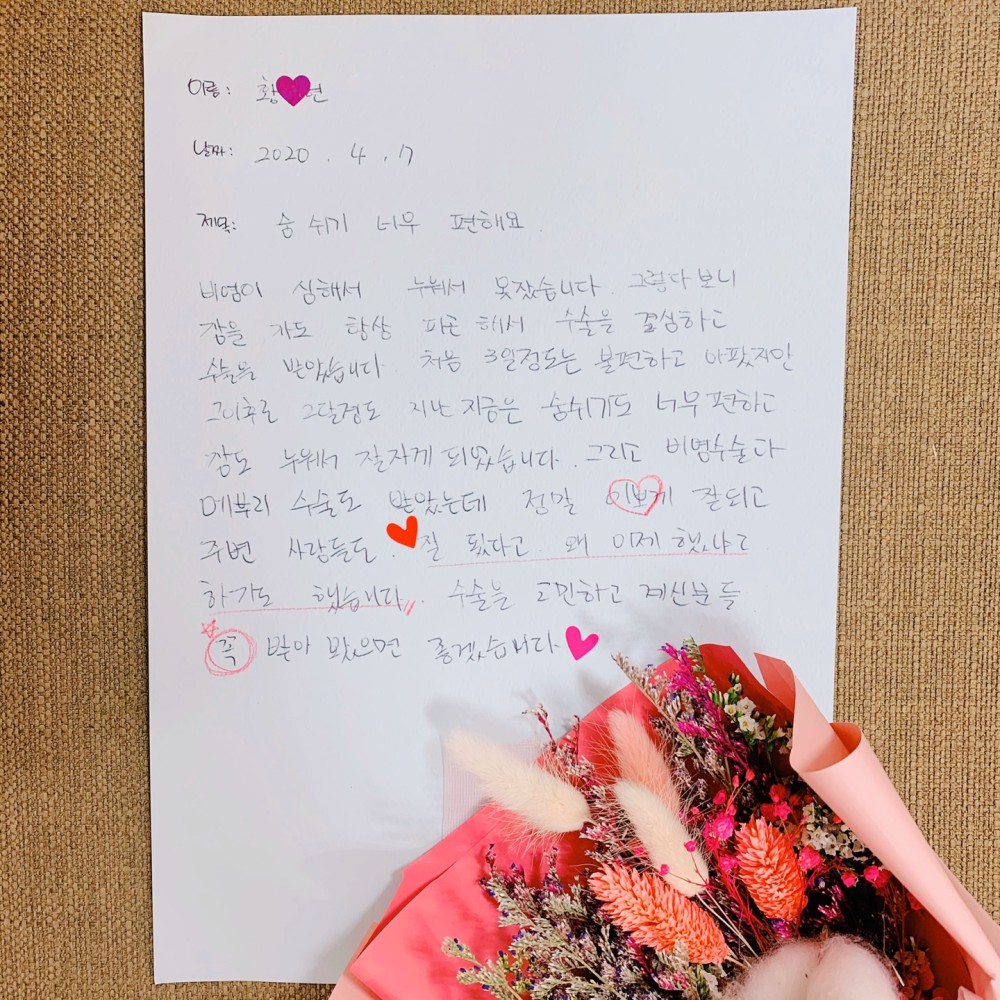 이름: 황 현
날짜: 2020. 4. 17
제목: 숨쉬기 너무 편해요.
비염이 심해서 누워서 못잤습니다. 그렇다보니
잠을 자도 항상 피곤해서 수술을 결심하고
수술을 받았습니다. 처음 3일정도는 불편하고 아팠지만
그이후로 2달정도 지난 지금은 숨쉬기도 너무 편하고
잠도 누워서 잘자게 되었습니다. 그리고 비염수술다
메부리 수술도 받았는데 정말 이쁘게 잘되고
주변 사람들도 잘 됬다고 왜 이제 했냐고
하기도 했습니다. 수술을 고민하고 계신분들
꼭 받아 봤으면 좋겠습니다